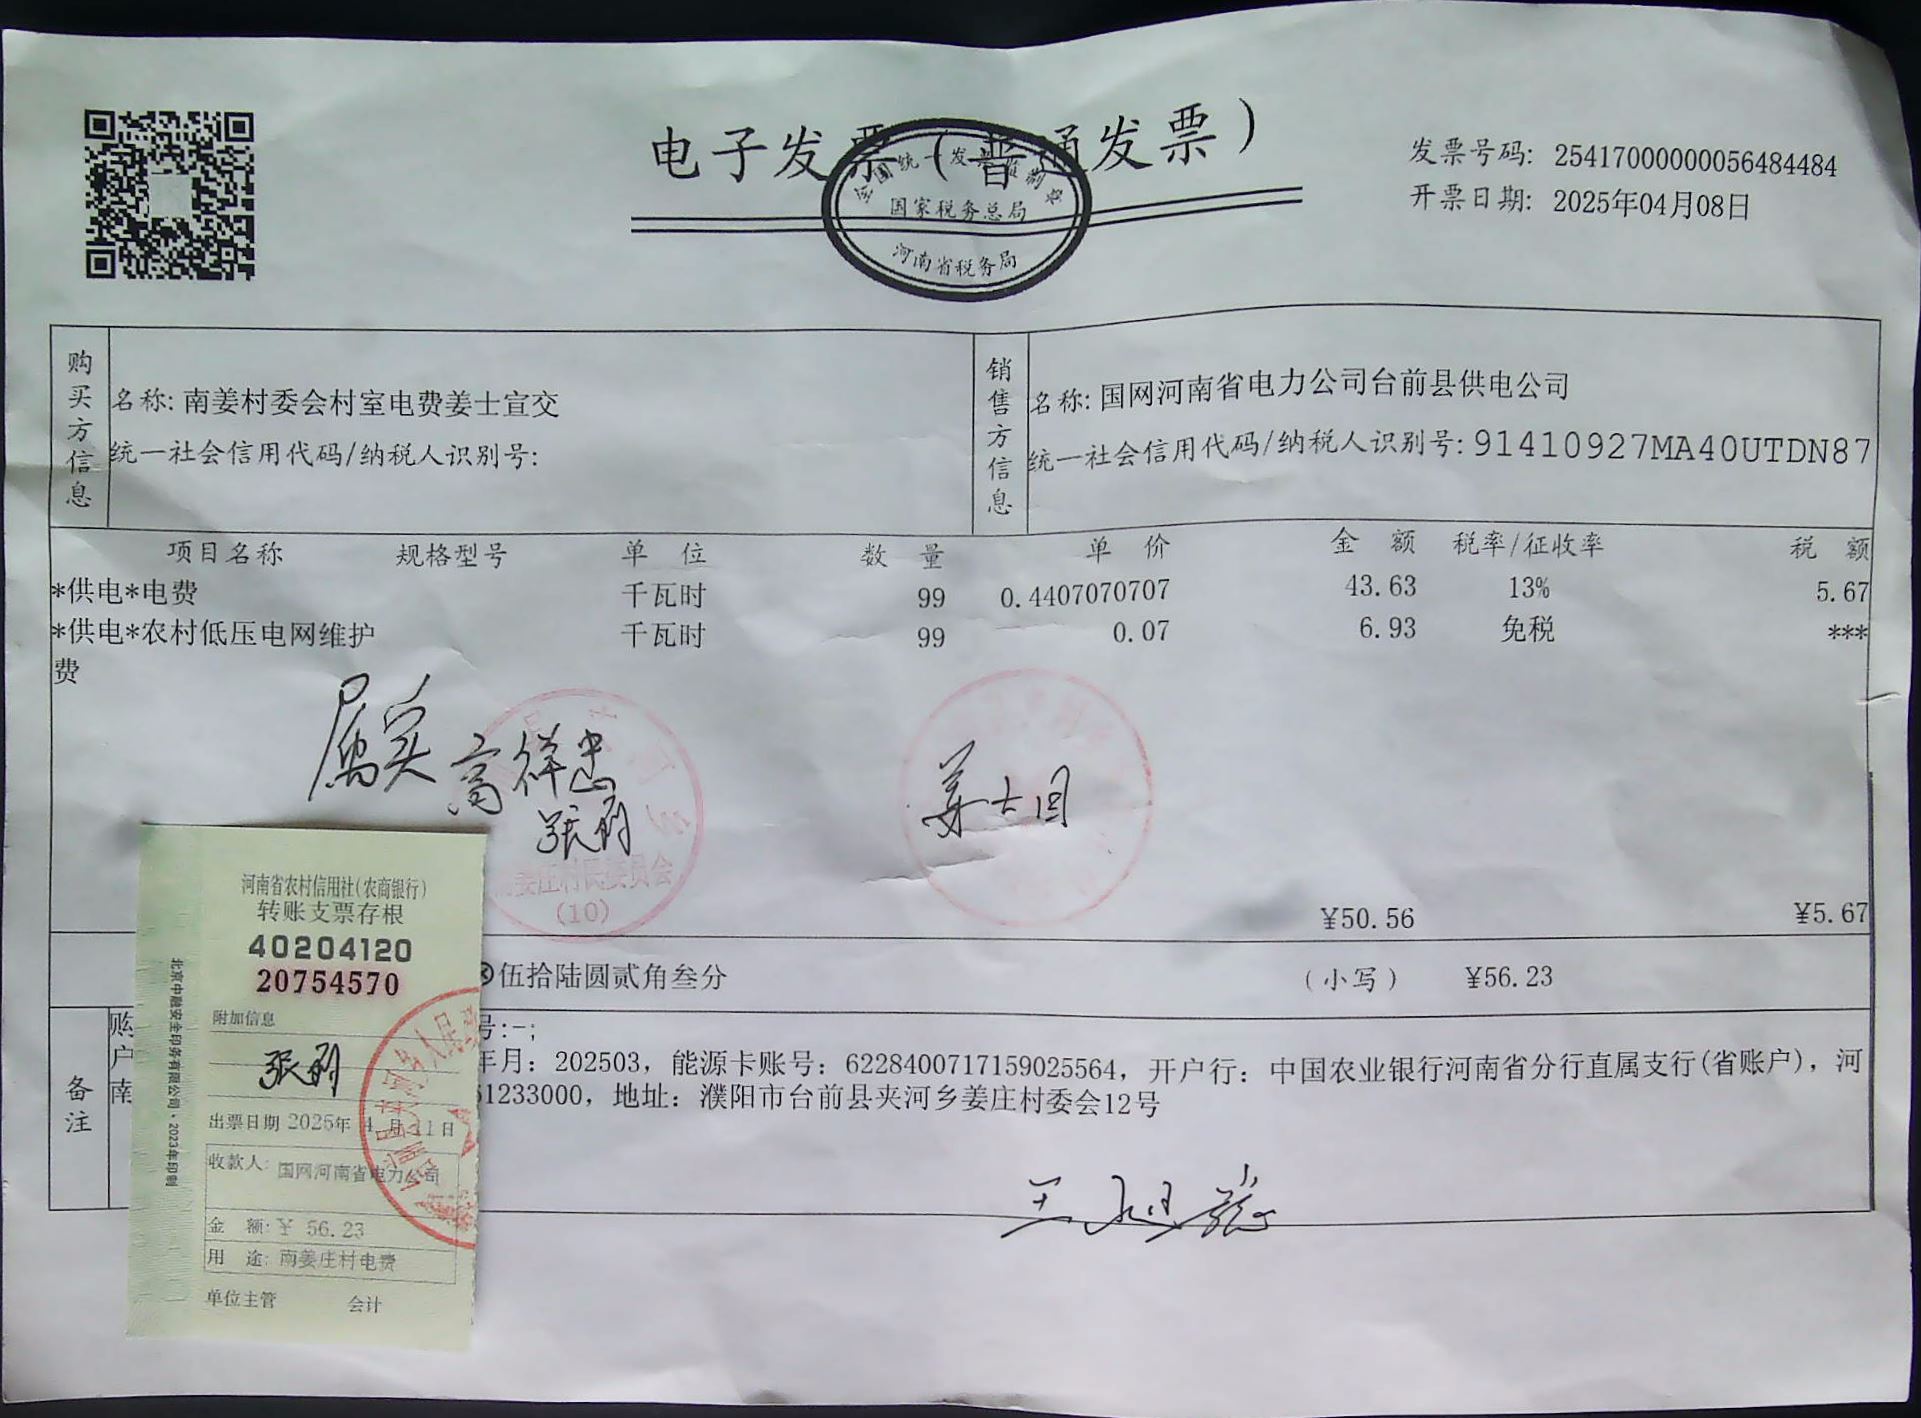 电子发票（普通发票）
全国统一发票监制章
国家税务总局
河南省税务局
发票号码: 25417000000056484484
开票日期: 2025年04月08日
购买方信息
名称: 南姜村委会村室电费姜士宣交
统一社会信用代码/纳税人识别号:
销售方信息
名称: 国网河南省电力公司台前县供电公司
统一社会信用代码/纳税人识别号: 91410927MA40UTDN87
项目名称 规格型号 单 位 数 量 单 价 金 额 税率/征收率 税 额
*供电*电费 千瓦时 99 0.4407070707 43.63 13% 5.67
*供电*农村低压电网维护 千瓦时 99 0.07 6.93 免税 ***
费
属实
高祥忠
姜庄村民委员会
(10)
¥50.56 ¥5.67
伍拾陆圆贰角叁分 (小写) ¥56.23
备注
购
户
南
号:-;
年月: 202503, 能源卡账号: 6228400717159025564, 开户行: 中国农业银行河南省分行直属支行(省账户), 河
61233000, 地址: 濮阳市台前县夹河乡姜庄村委会12号
河南省农村信用社(农商银行)
转账支票存根
40204120
20754570
附加信息
出票日期 2025年 4 月 11日
收款人: 国网河南省电力公司
金 额: ¥ 56.23
用 途: 南姜庄村电费
单位主管 会计
北京中融安全印务有限公司·2023年印制